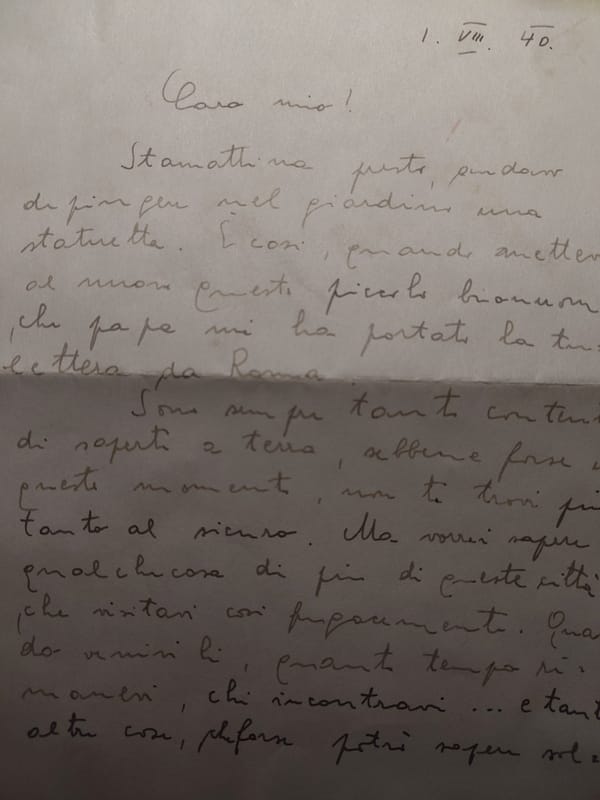 1. VIII. 40.
Caro mio!
Stamattina presto, andavo
dipingere nel giardino una
statuetta. E così, quando mettevo
al muro questo piccolo
, che papa mi ha portato la tu
lettera da Roma.
Sono sempre tanto content
di saperti a terra, sebbene forse i
questo momento, non ti trovi più
tanto al sicuro. Ma vorrei sapere
qualchecosa di più di queste città
, che visitavi così fugacemente. Qua
do venivi lì, quanto tempo ri-
manevi, chi incontravi ... e tant
altre cose, che forse potrò sapere sol